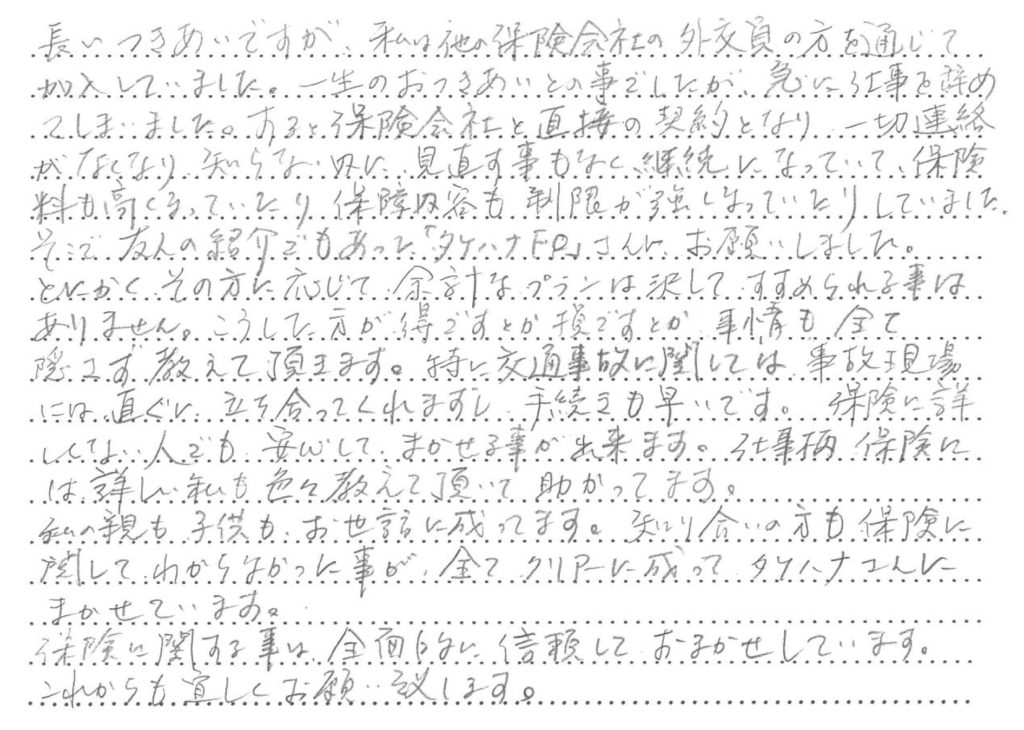 長いつきあいですが、私は他の保険会社の外交員の方を通じて
加入していました。一生のおつきあいとの事でしたが、急に仕事を辞め
てしまいました。すると保険会社と直接の契約となり 一切連絡
がなくなり 知らない内に、見直す事もなく、継続になっていて、保険
料も高くなっていたり 保障内容も制限が強くなっていたりしていました。
そこで友人の紹介でもあった「タケハナFP」さんに、お願いしました。
とにかく その方に応じて 余計なプランは決して すすめられる事は
ありません。こうした方が得ですとか 損ですとか、事情も 全て
隠さず教えて頂きます。特に交通事故に関しては 事故現場
には、直ぐに 立ち合ってくれますし 手続きも早いです。 保険に詳
しくない人でも 安心して まかせる事が出来ます。仕事柄 保険に
は 詳しい私も 色々教えて頂いて 助かってます。
私の親も 子供も お世話に成ってます。 知り合いの方も保険に
関して わからなかった事が、全て クリアーに成って タケハナさんに
まかせています。
保険に関する事は 全面的に 信頼して おまかせしています。
これからも宜しくお願い致します。